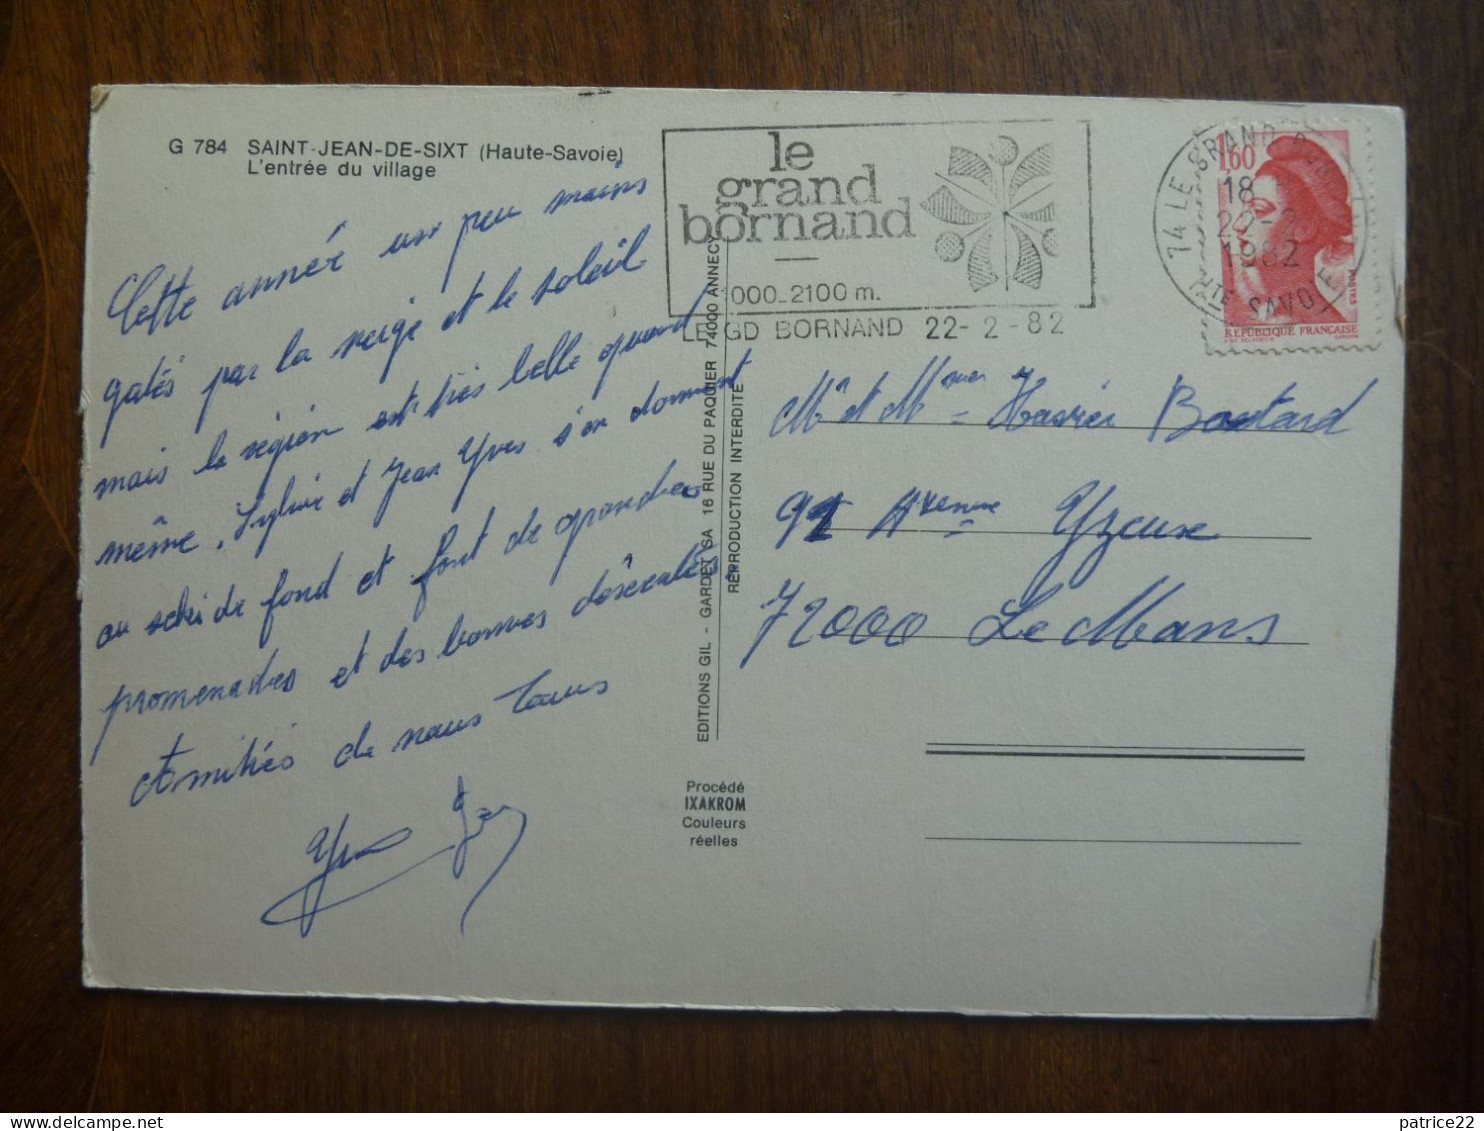 G 784 SAINT-JEAN-DE-SIXT (Haute-Savoie)
L'entrée du village
Cette année un peu moins
gatés par la neige et le soleil
mais la région est très belle quand
même. Sylvie et Jean Yves s'en donnent
au ski de fond et font de grandes
promenades et des bonnes
Amitiés de nous tous
EDITIONS GIL - GARDET SA 16 RUE DU PAQUIER 74000 ANNECY
REPRODUCTION INTERDITE
Procédé
IXAKROM
Couleurs
réelles
le
grand
bornand
1000-2100 m.
LE GD BORNAND 22-2-82
74 LE GRAND BORNAND
18
22-2
1982
HTE SAVOIE
1,60
POSTES
REPUBLIQUE FRANÇAISE
Mr et Mme Xavier Boutard
91 Avenue Yzeux
72000 Le Mans
patrice22